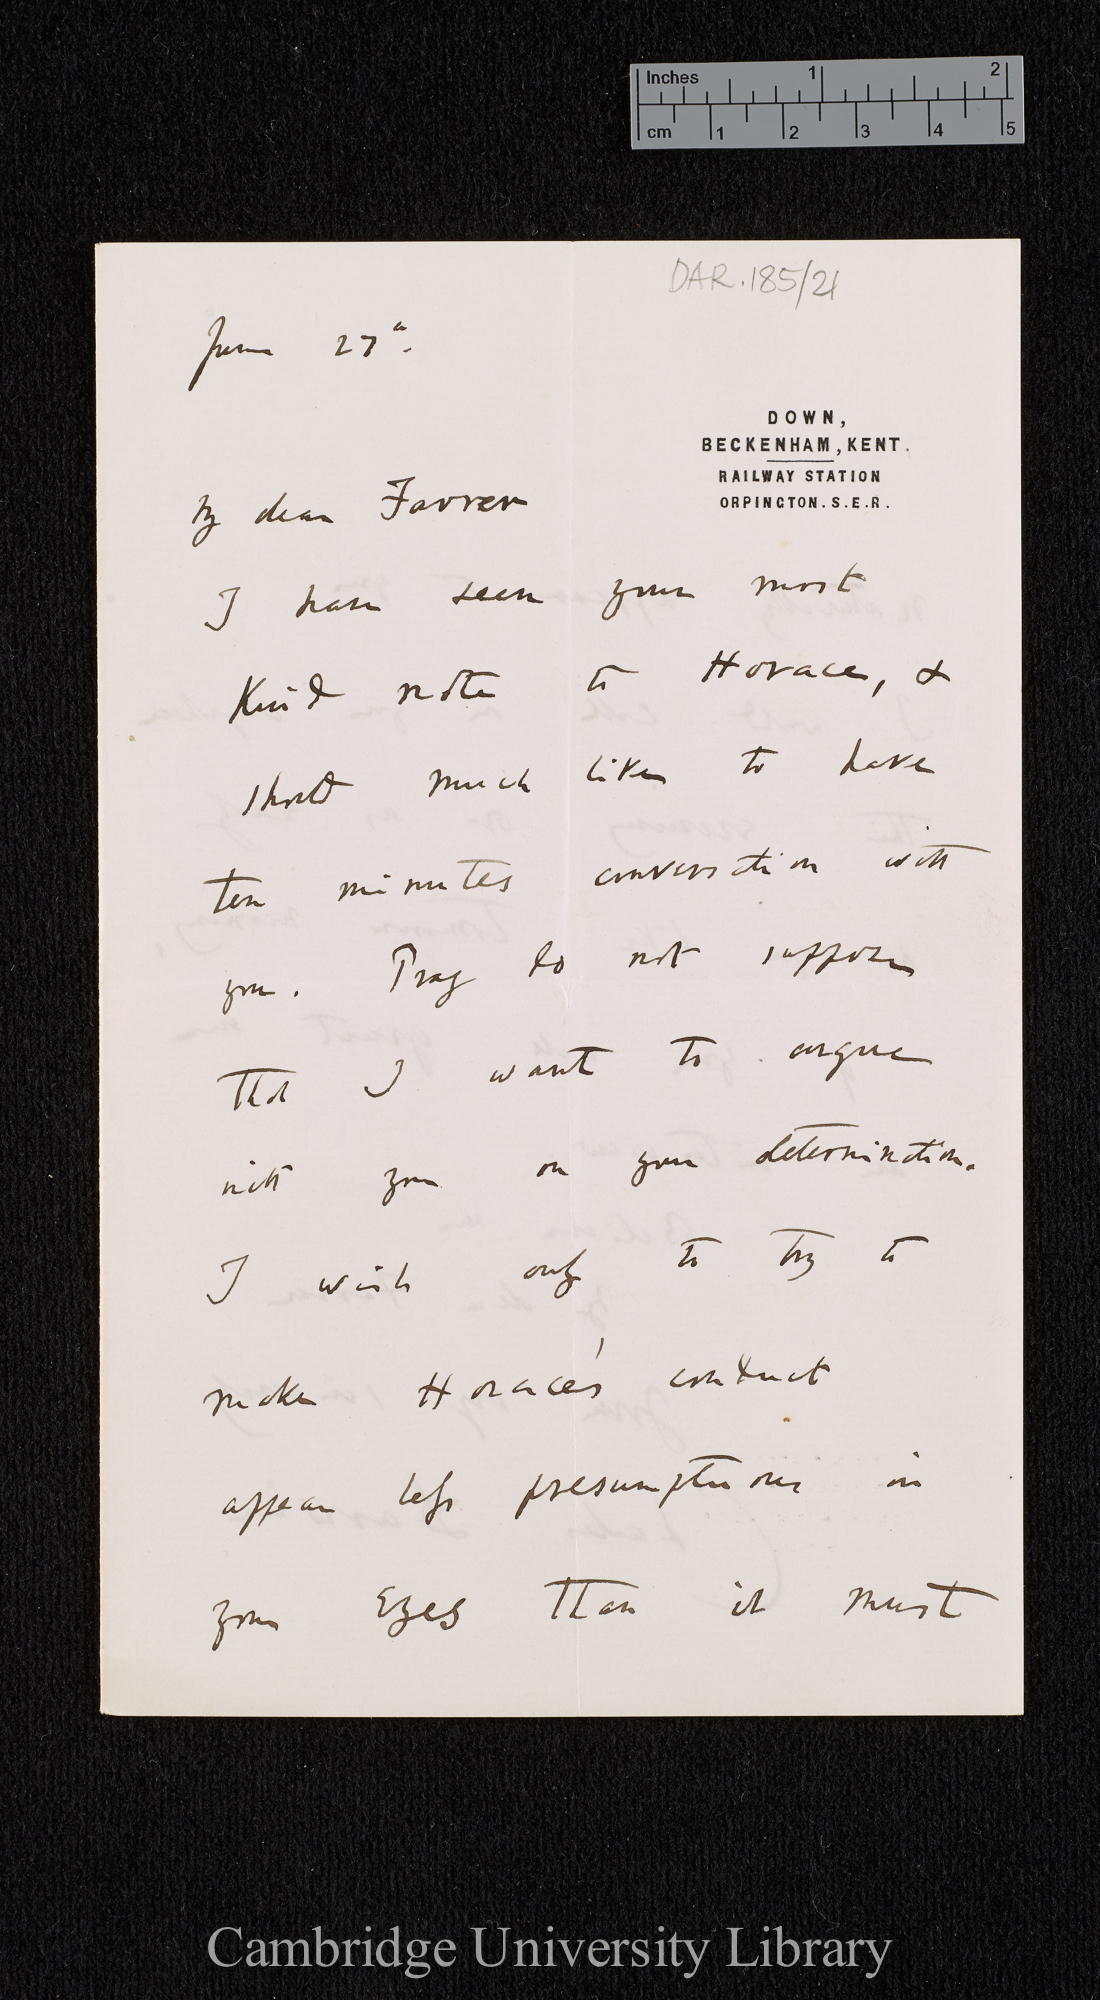 Inches 1 2
cm 1 2 3 4 5
DAR.185/21
June 27th.
DOWN,
BECKENHAM, KENT.
RAILWAY STATION
ORPINGTON. S.E.R.
My dear Farrer
I have seen your most
kind note to Horace, &
should much like to have
ten minutes conversation with
you. Pray do not suppose
that I want to argue
with you on your determination.
I wish only to try to
make Horace's conduct
appear less presumptuous in
your eyes than it must
Cambridge University Library